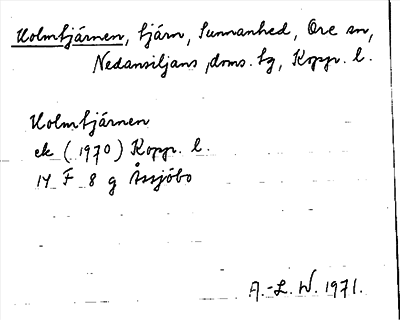 Holmtjärnen, tjärn, Sunnanhed, Ore sn,
Nedansiljans doms. tg, Kopp. l.
Holmtjärnen
ek (1970) Kopp. l.
14 F 8 g Åssjöbo
A.-L. W. 1971.